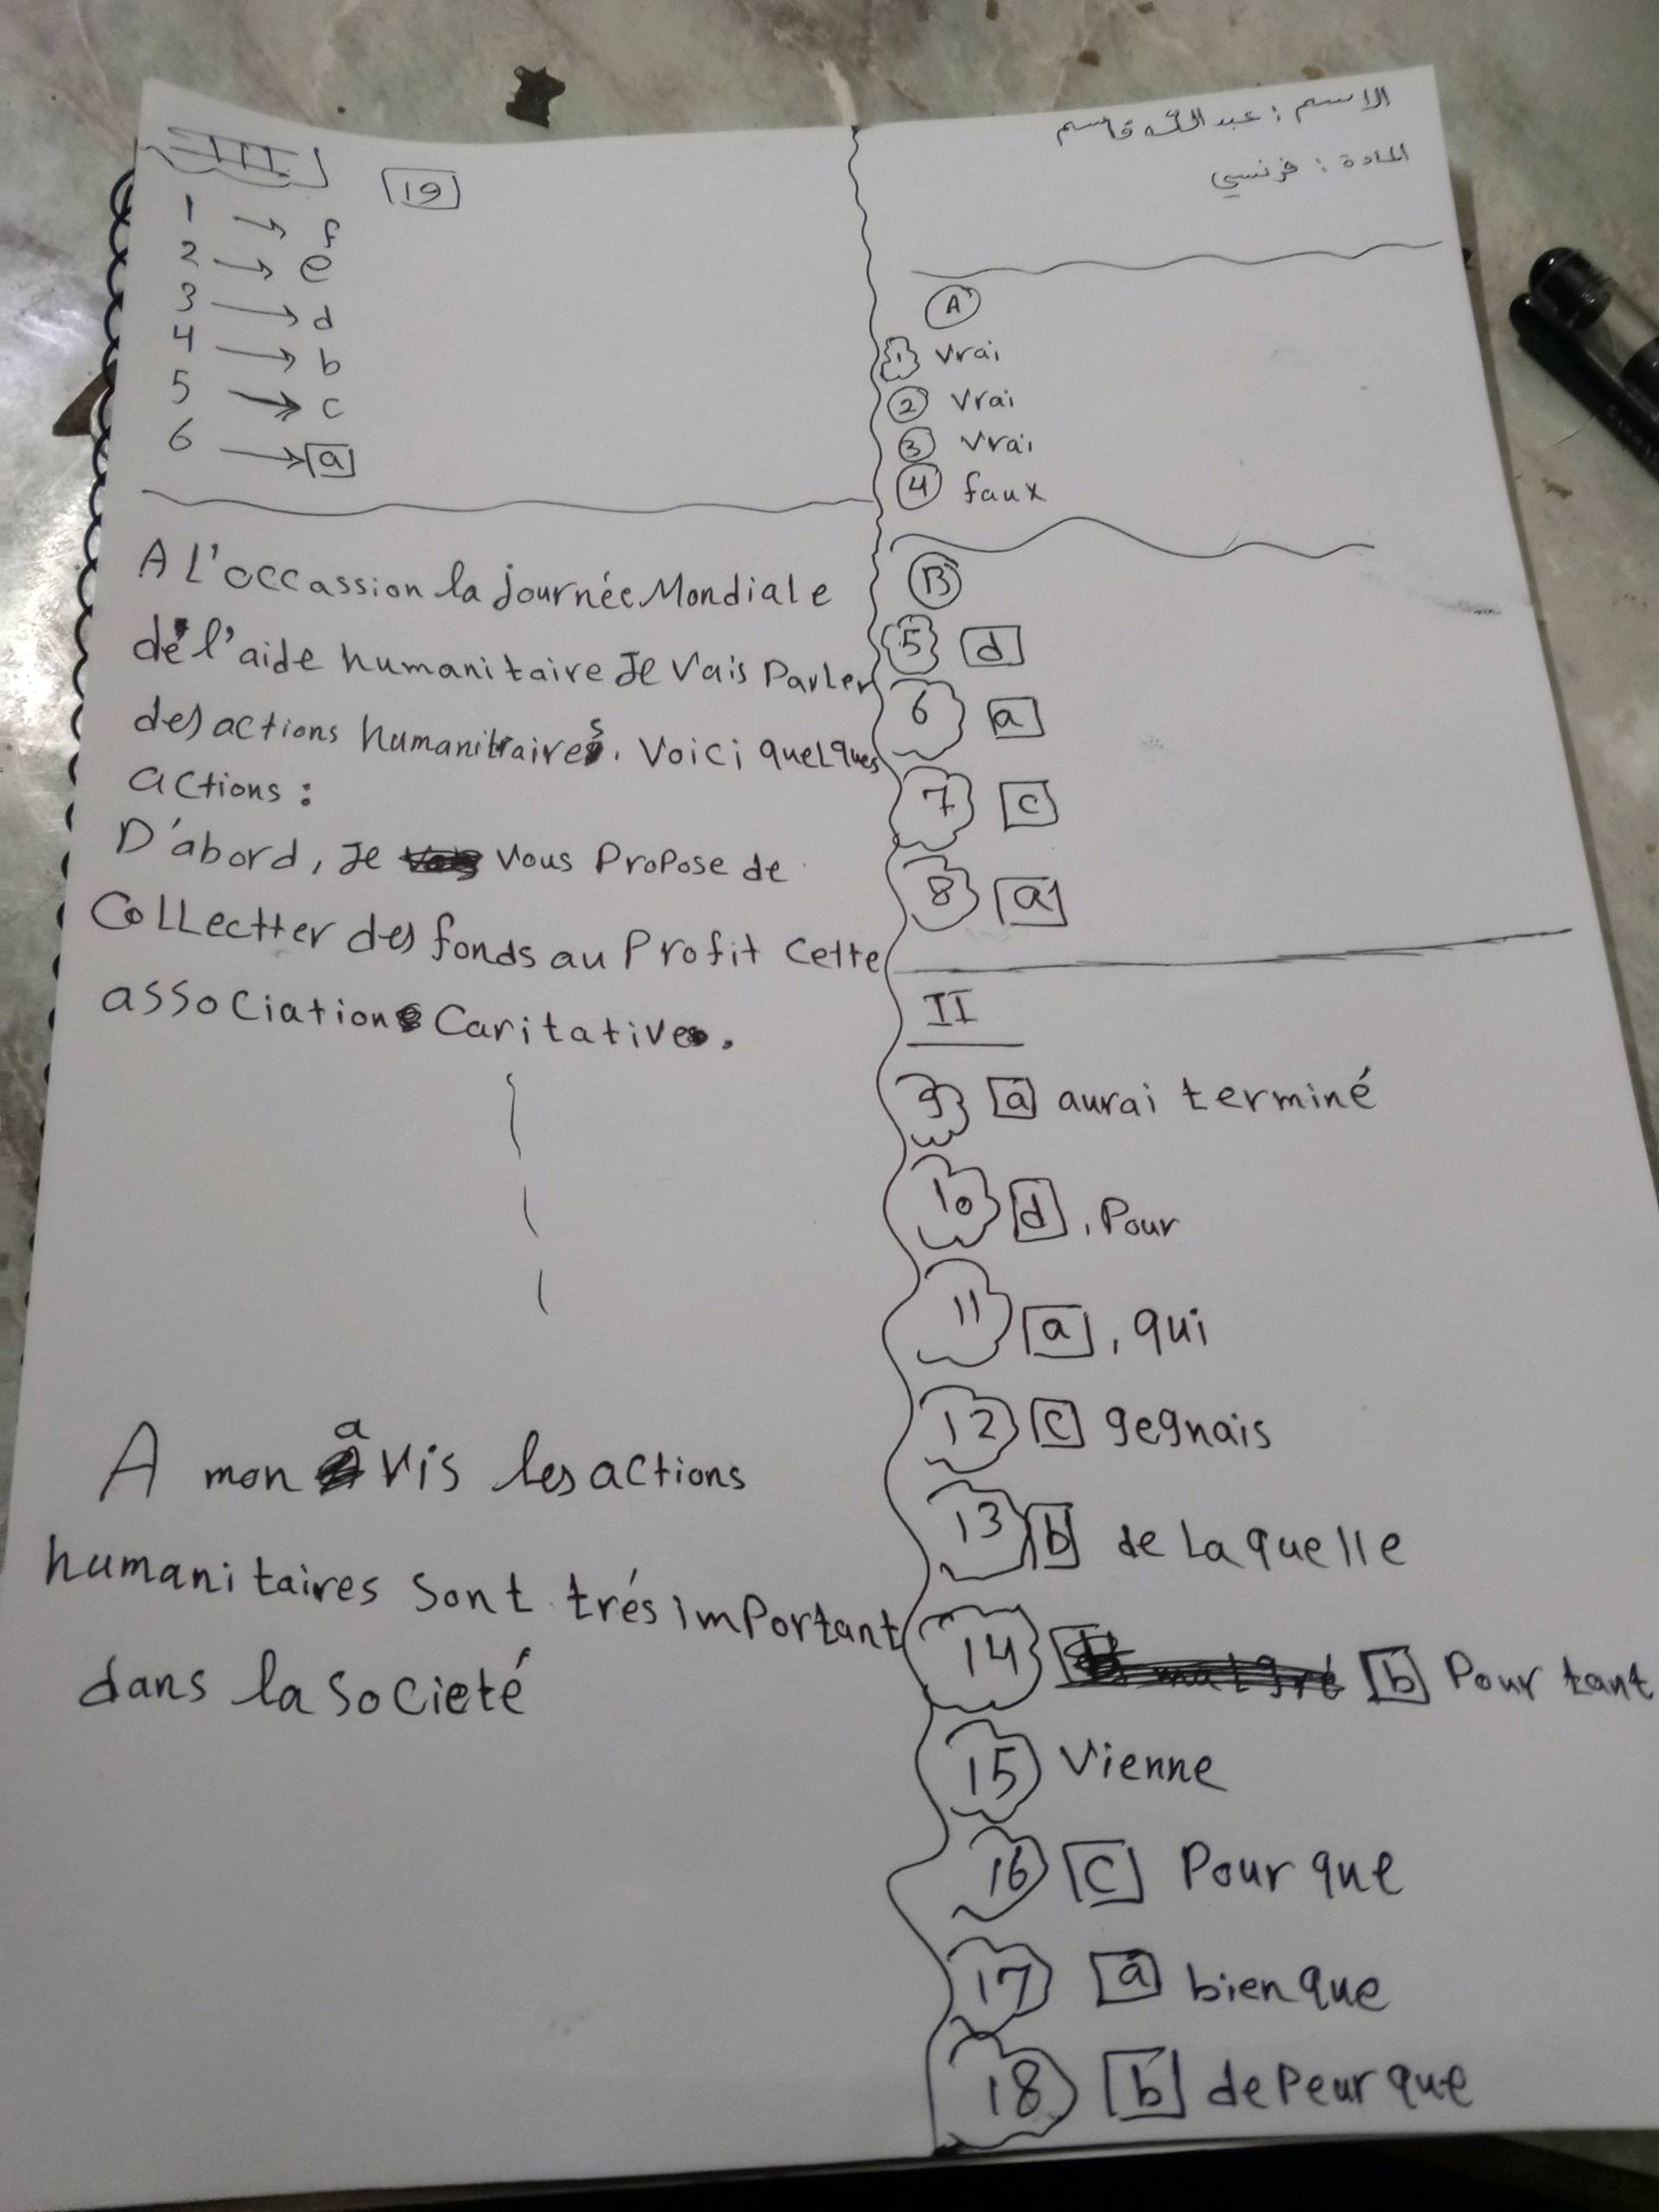 الاسم : عبد الله قاسم
المادة : فرنسي
A
1 vrai
2 vrai
3 vrai
4 faux
B
5 d
6 a
7 c
8 a
II
9 a aurai terminé
10 d, Pour
11 a, qui
12 c gegnais
13 b de Laquelle
14 b Pour tant
15 Vienne
16 c Pour que
17 a bien que
18 b de Peur que
III
19
1 → f
2 → e
3 → d
4 → b
5 → c
6 → a
A L'occassion la journée Mondiale
de l'aide humanitaire Je Vais Parler
des actions humanitraires. Voici quelques
actions :
D'abord, Je Vous Propose de
Collectter des fonds au Profit Cette
association Caritative.
A mon avis les actions
humanitaires Sont trés important
dans la Societé